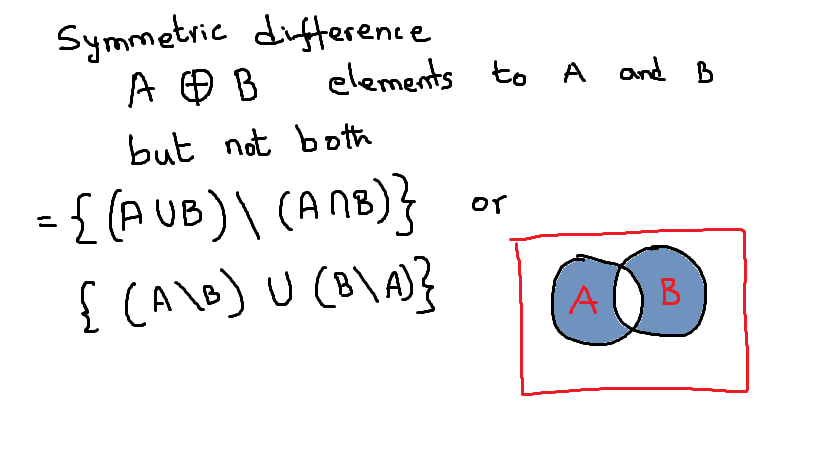 Symmetric difference
A ⊕ B elements to A and B
but not both
= { (A ∪ B) \ (A ∩ B)} or
{ (A \ B) ∪ (B \ A)}
A B